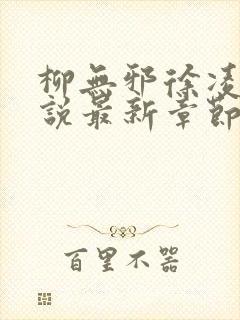 柳無邪徐凌
說最新章節
百里不器